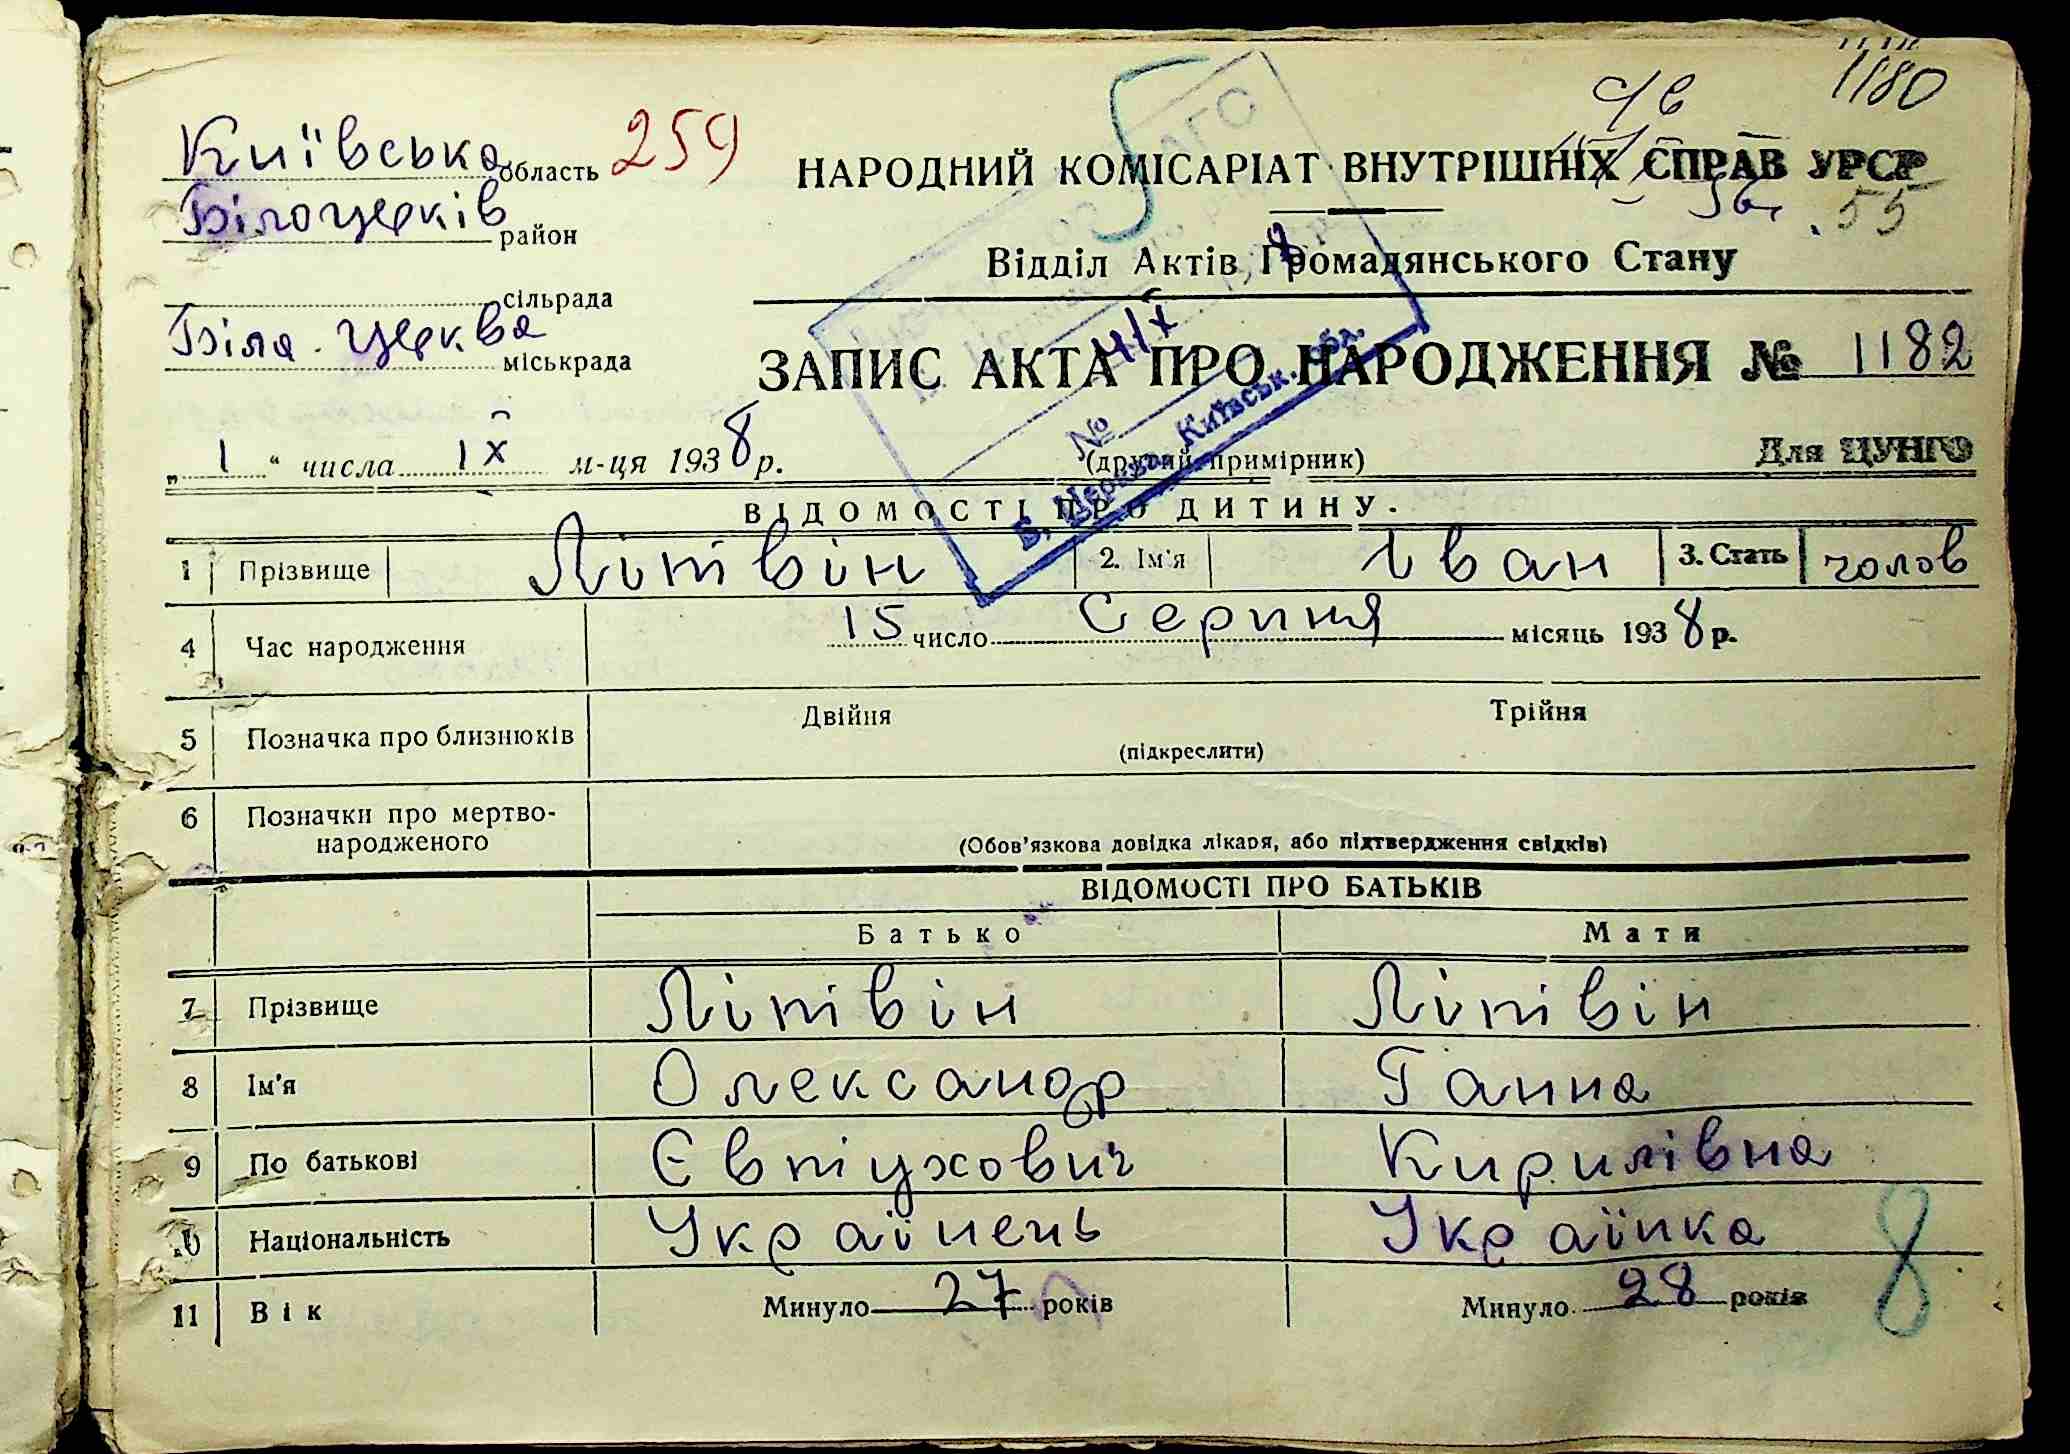 1180
Київська область 259
НАРОДНИЙ КОМІСАРІАТ ВНУТРІШНІХ СПРАВ УРСР
Білоцерків район
55
Відділ Актів Громадянського Стану
сільрада
Біла-Церква міськрада
ЗАПИС АКТА ПРО НАРОДЖЕННЯ № 1182
„ 1 “ числа IX м-ця 1938 р.
(другий примірник)
Для ЦУНГО
№ 4/X
Б. Церква, Київськ. обл.
ВІДОМОСТІ ПРО ДИТИНУ.
1 Прізвище Літвін 2. Ім'я Іван 3. Стать чолов
4 Час народження 15 число Серпня місяць 1938 р.
5 Позначка про близнюків Двійня Трійня
(підкреслити)
6 Позначки про мертво-
народженого
(Обов'язкова довідка лікаря, або підтвердження свідків)
ВІДОМОСТІ ПРО БАТЬКІВ
Батько Мати
7 Прізвище Літвін Літвін
8 Ім'я Олександр Ганна
9 По батькові Євтіухович Кирилівна
10 Національність Українець Українка
11 Вік Минуло 27 років Минуло 28 років
8